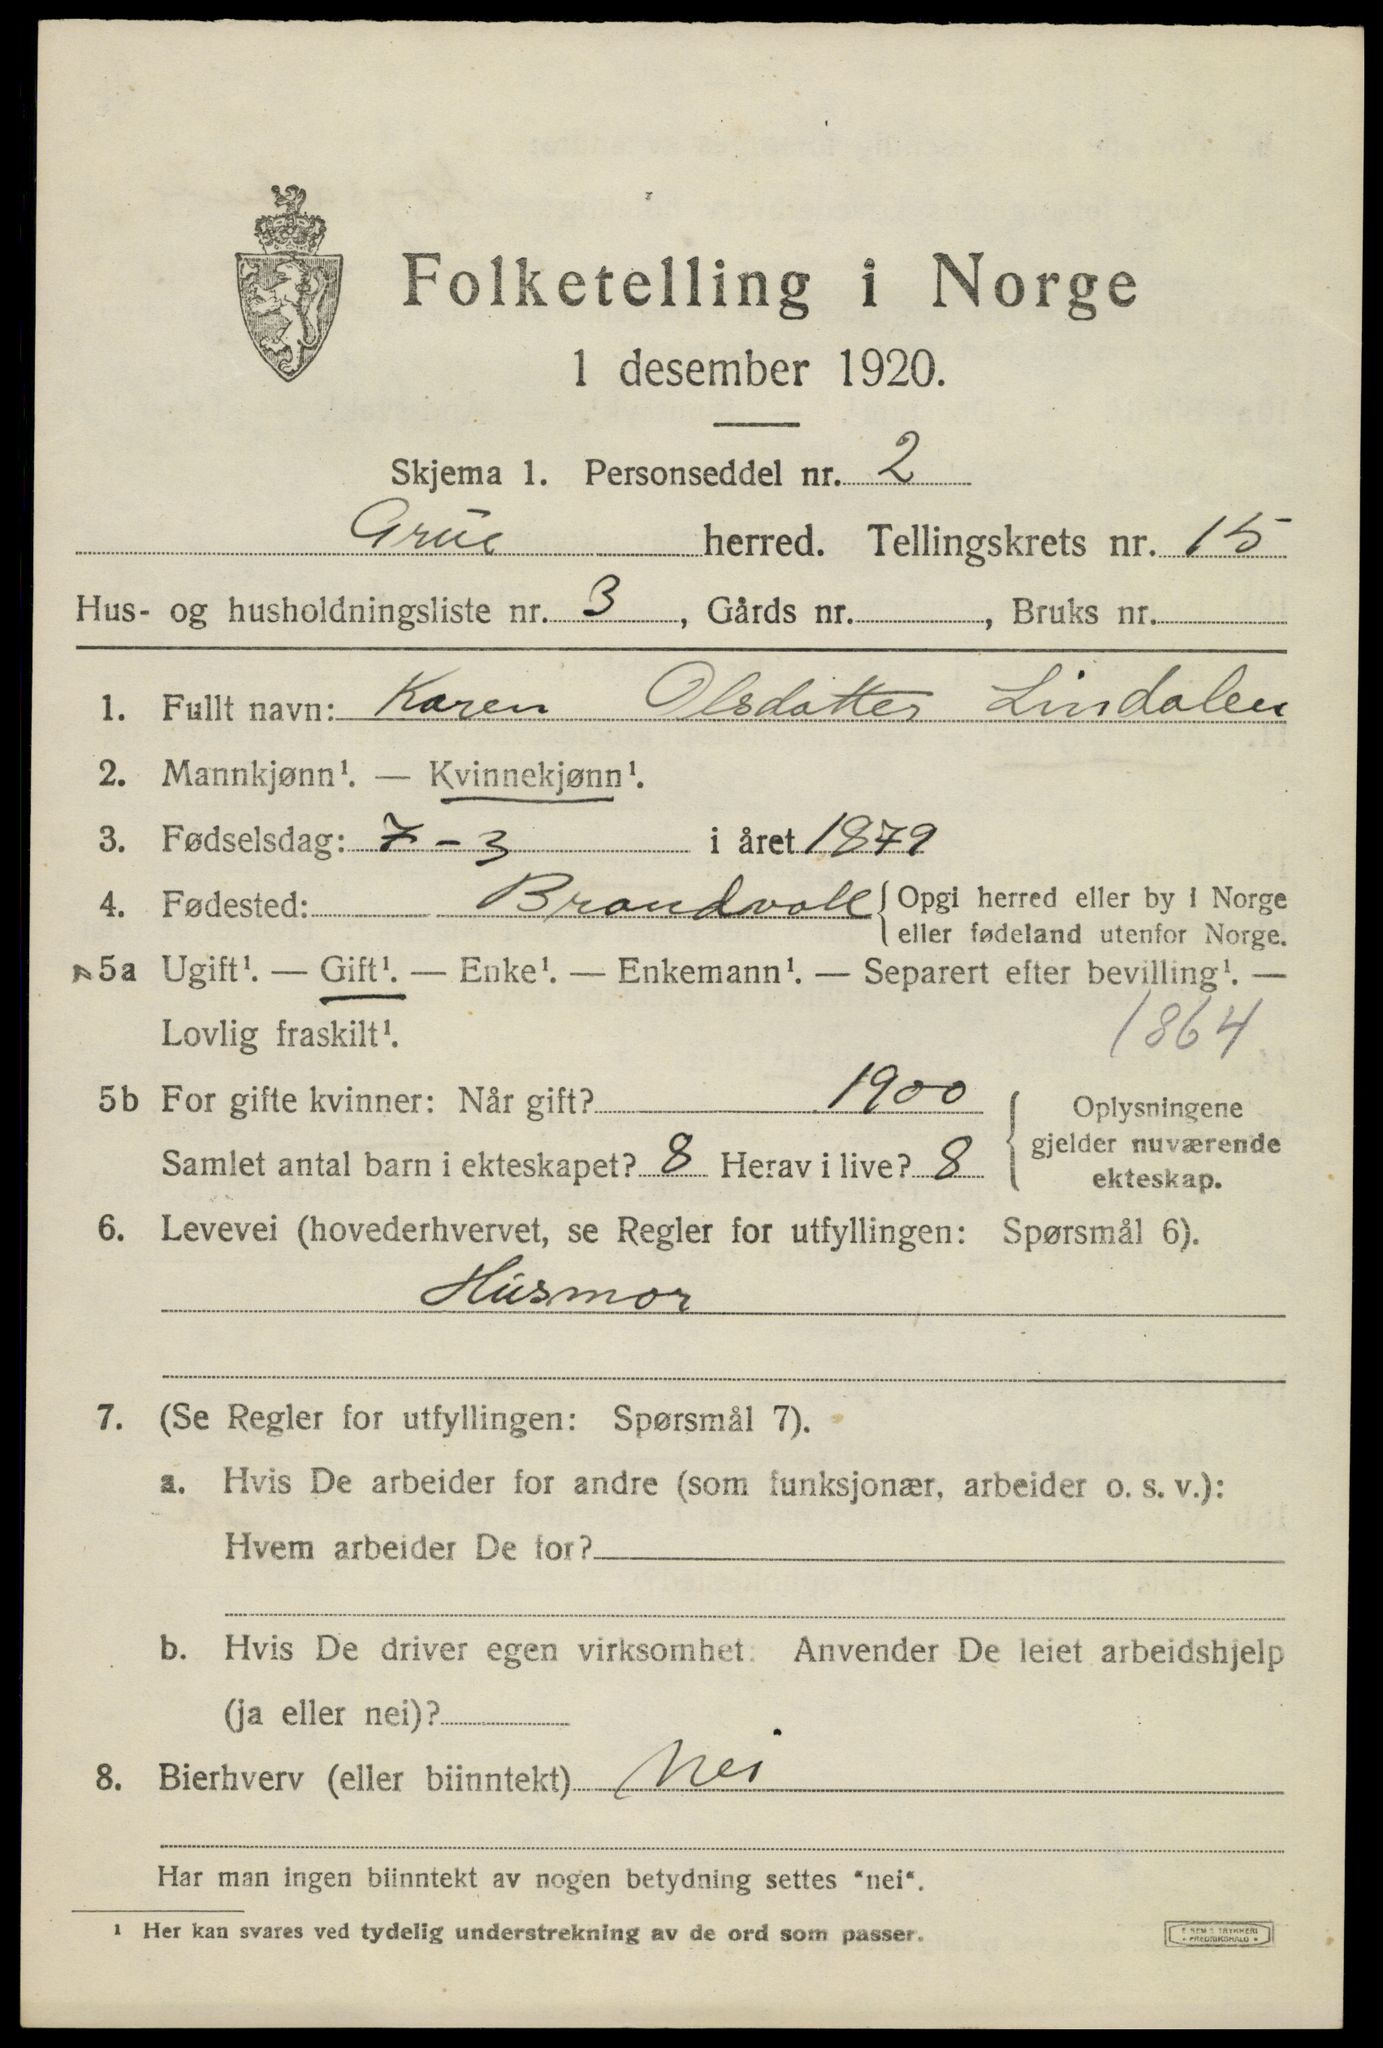 Folketelling i Norge
1 desember 1920.
Skjema 1. Personseddel nr. 2
Grue herred. Tellingskrets nr. 15
Hus- og husholdningsliste nr. 3, Gårds nr. , Bruks nr.
1. Fullt navn: Karen Olsdatter Lindalen
2. Mannkjønn¹. — Kvinnekjønn¹.
3. Fødselsdag: 7-3 i året 1879
4. Fødested: Brandvoll { Opgi herred eller by i Norge
eller fødeland utenfor Norge.
5a Ugift¹. — Gift¹. — Enke¹. — Enkemann¹. — Separert efter bevilling¹. —
Lovlig fraskilt¹. 1864
5b For gifte kvinner: Når gift? 1900
Samlet antal barn i ekteskapet? 8 Herav i live? 8
Oplysningene
gjelder nuværende
ekteskap.
6. Levevei (hovederhvervet, se Regler for utfyllingen: Spørsmål 6).
Husmor
7. (Se Regler for utfyllingen: Spørsmål 7).
a. Hvis De arbeider for andre (som funksjonær, arbeider o. s. v.):
Hvem arbeider De for?
b. Hvis De driver egen virksomhet: Anvender De leiet arbeidshjelp
(ja eller nei)?
8. Bierhverv (eller biinntekt) Nei
Har man ingen biinntekt av nogen betydning settes "nei".
¹ Her kan svares ved tydelig understrekning av de ord som passer.